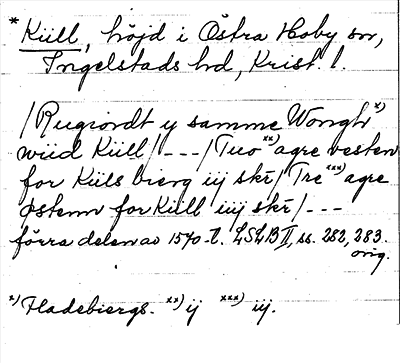 * Küll, höjd i Östra Hoby sn,
Ingelstads hd, Krist. l.
/Rugiordt y samme Wongh x)
wiid Küll/---/Tuo xx) agre vesten
for Küls bierg iij skr/Tre xxx) agre
østenn for Küll iiij skr/---
förra delen av 1570-t. LSLB II, ss. 282, 283.
orig.
x) Fladebiergs. xx) ij xxx) iij.